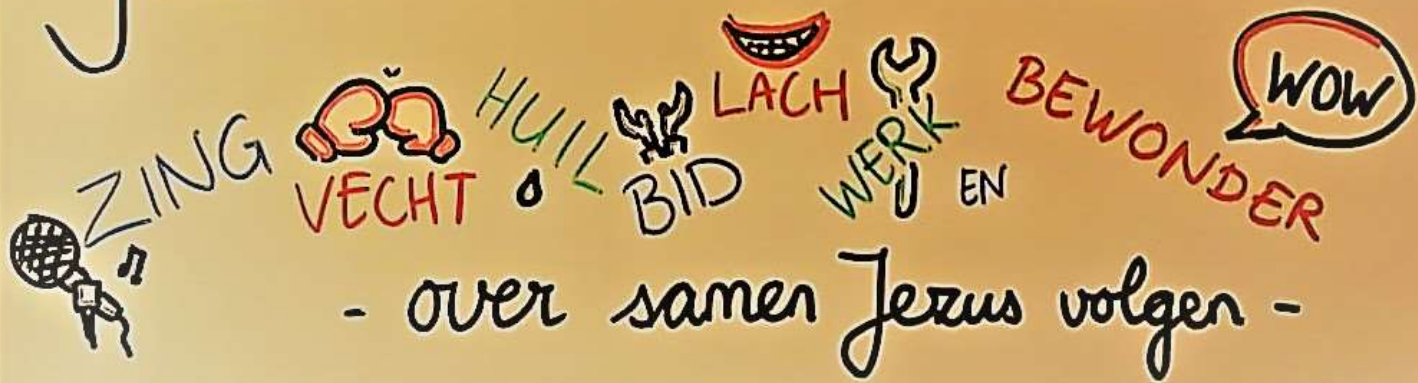 ZING VECHT HUIL BID LACH WERK EN BEWONDER WOW
- over samen Jezus volgen -